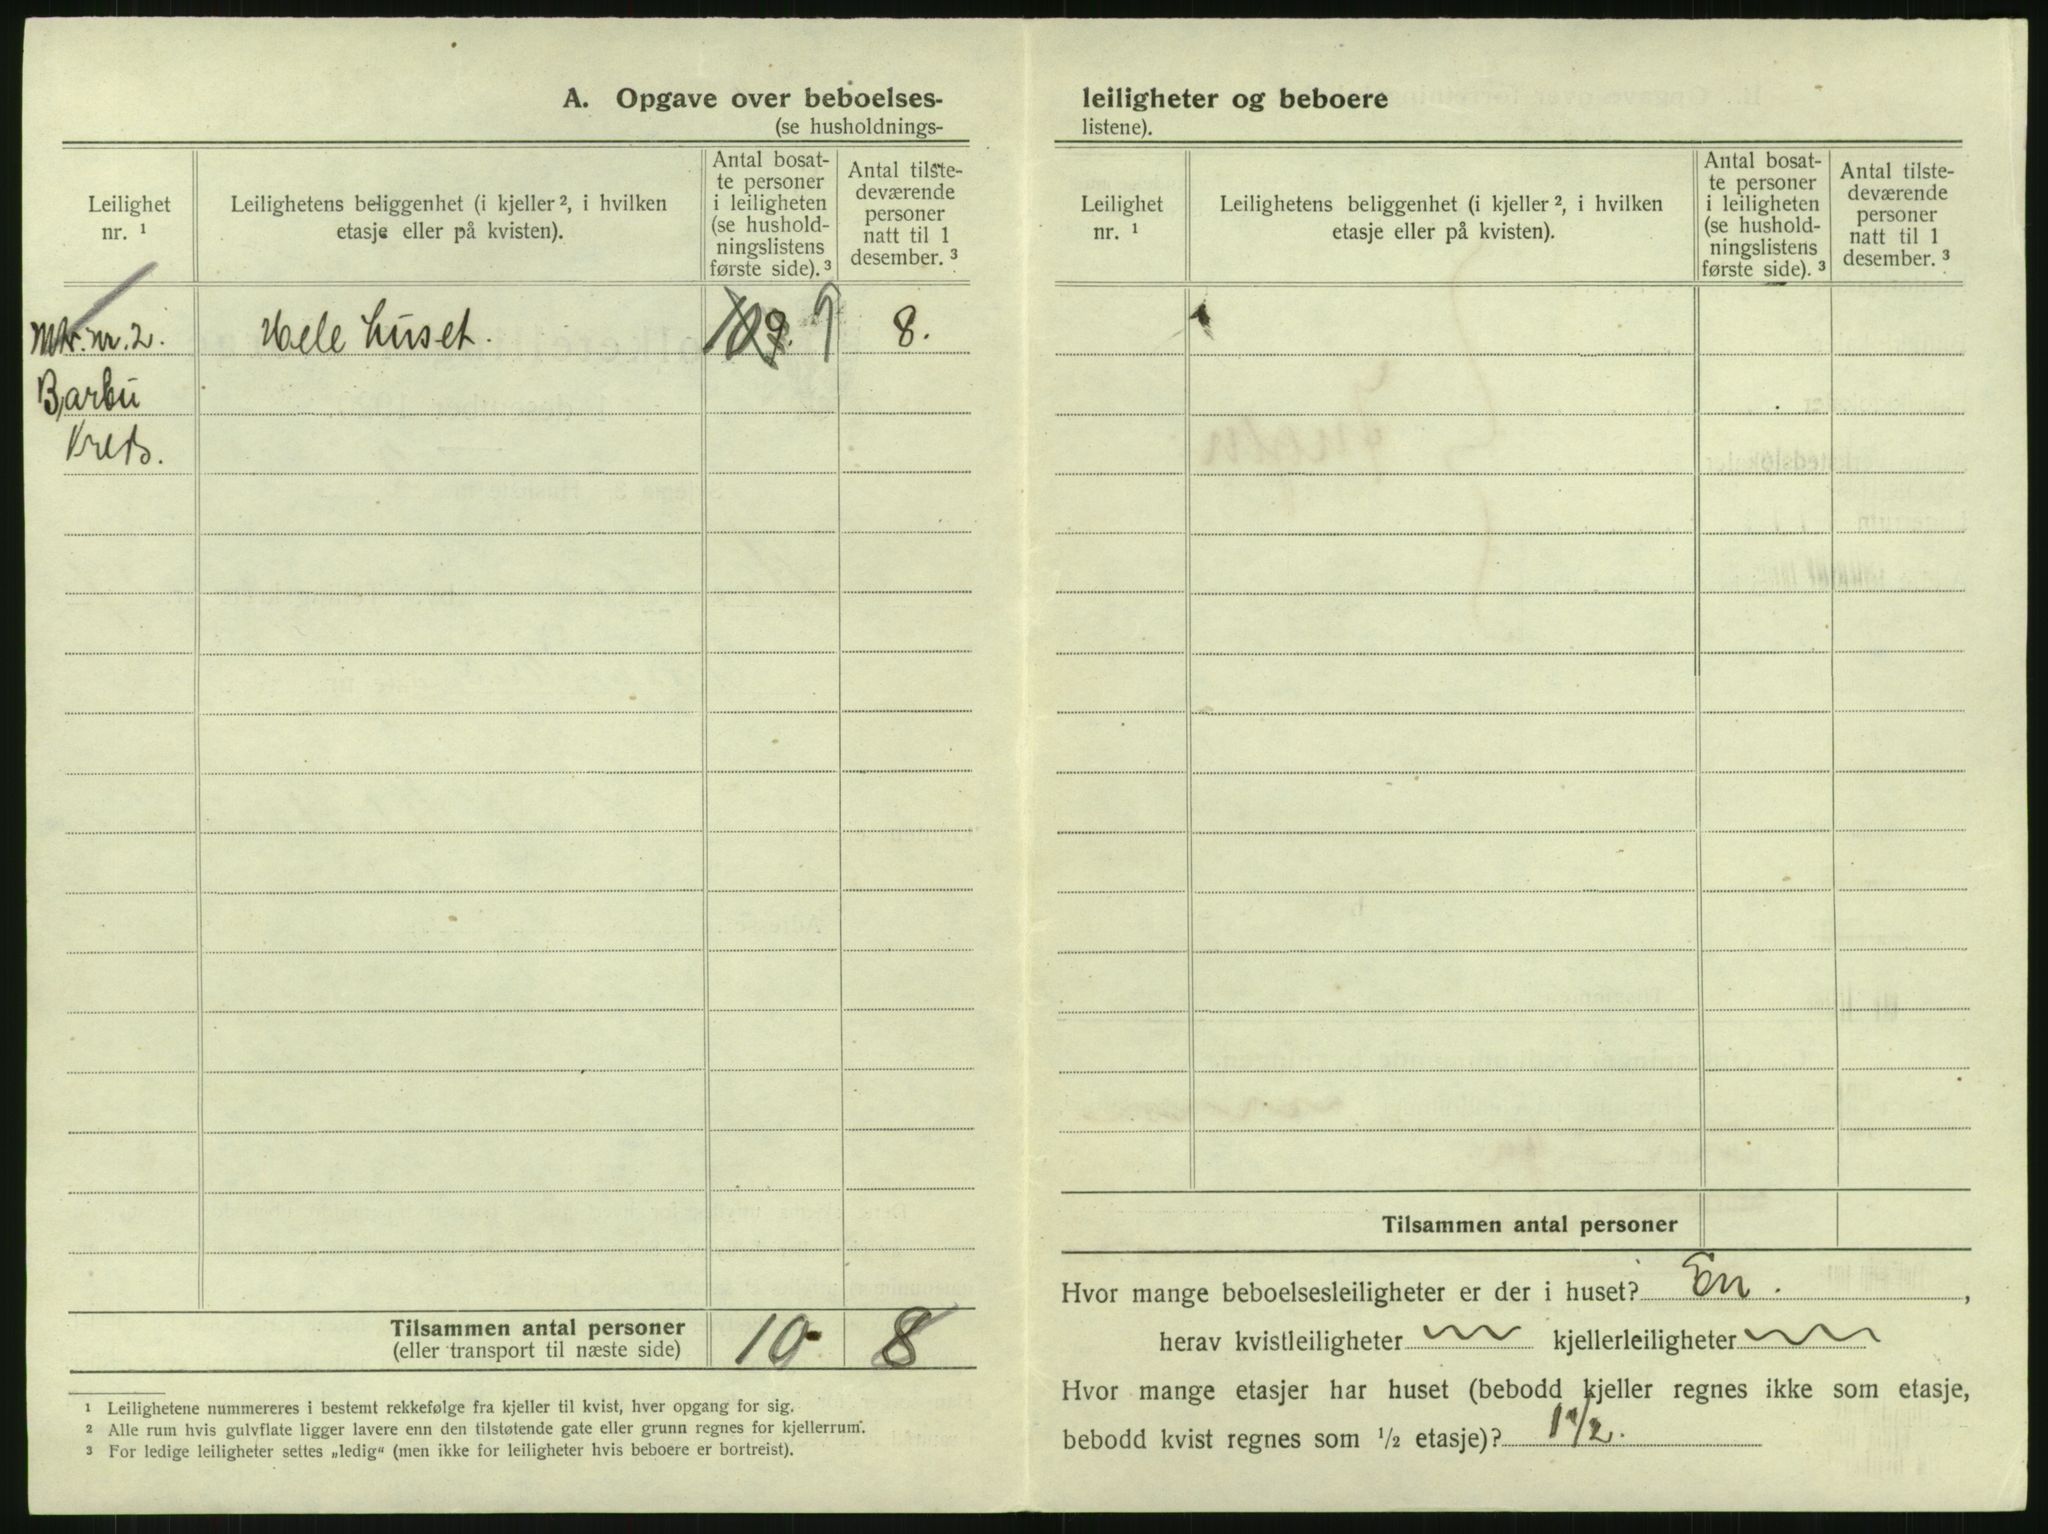 A. Opgave over beboelses-
(se husholdnings-
Leilighet
nr. ¹
Leilighetens beliggenhet (i kjeller ², i hvilken
etasje eller på kvisten).
Antal bosat-
te personer
i leiligheten
(se hushold-
ningslistens
første side). ³
Antal tilste-
deværende
personer
natt til 1
desember. ³
Mtr. nr. 2. Hele huset. 8.
Barbu
Kreds.
Tilsammen antal personer 10 8
(eller transport til næste side)
¹ Leilighetene nummereres i bestemt rekkefølge fra kjeller til kvist, hver opgang for sig.
² Alle rum hvis gulvflate ligger lavere enn den tilstøtende gate eller grunn regnes for kjellerrum.
³ For ledige leiligheter settes „ledig“ (men ikke for leiligheter hvis beboere er bortreist).
leiligheter og beboere
listene).
Leilighet
nr. ¹
Leilighetens beliggenhet (i kjeller ², i hvilken
etasje eller på kvisten).
Antal bosat-
te personer
i leiligheten
(se hushold-
ningslistens
første side). ³
Antal tilste-
deværende
personer
natt til 1
desember. ³
Tilsammen antal personer
Hvor mange beboelsesleiligheter er der i huset? En.,
herav kvistleiligheter kjellerleiligheter
Hvor mange etasjer har huset (bebodd kjeller regnes ikke som etasje,
bebodd kvist regnes som ½ etasje)? 1 1/2.